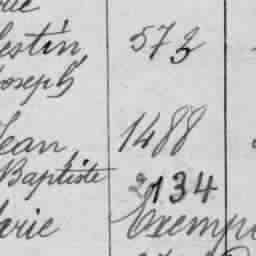 estin 573
Joseph
Jean 1488
Baptiste 2134
arie Exemp